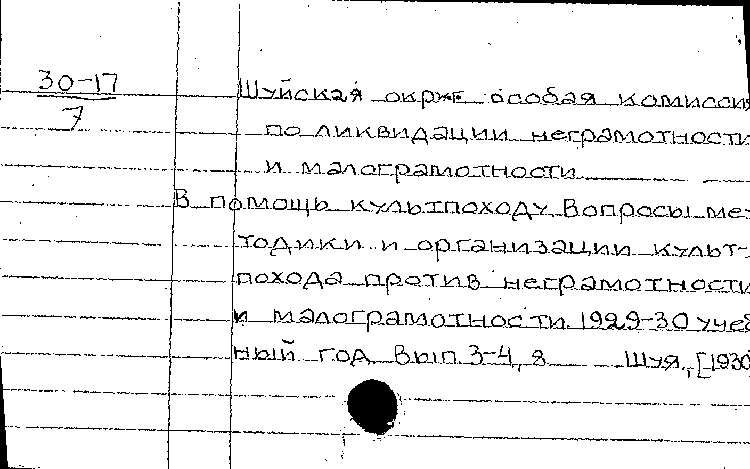 30-17
7
Шуйская окрж. особая комиссия
по ликвидации неграмотности
и малограмотности
В помощь культпоходу. Вопросы ме-
тодики и организации культ-
похода против неграмотности
и малограмотности. 1929-30 учеб
ный год. Вып. 3-4, 8 Шуя, [1930